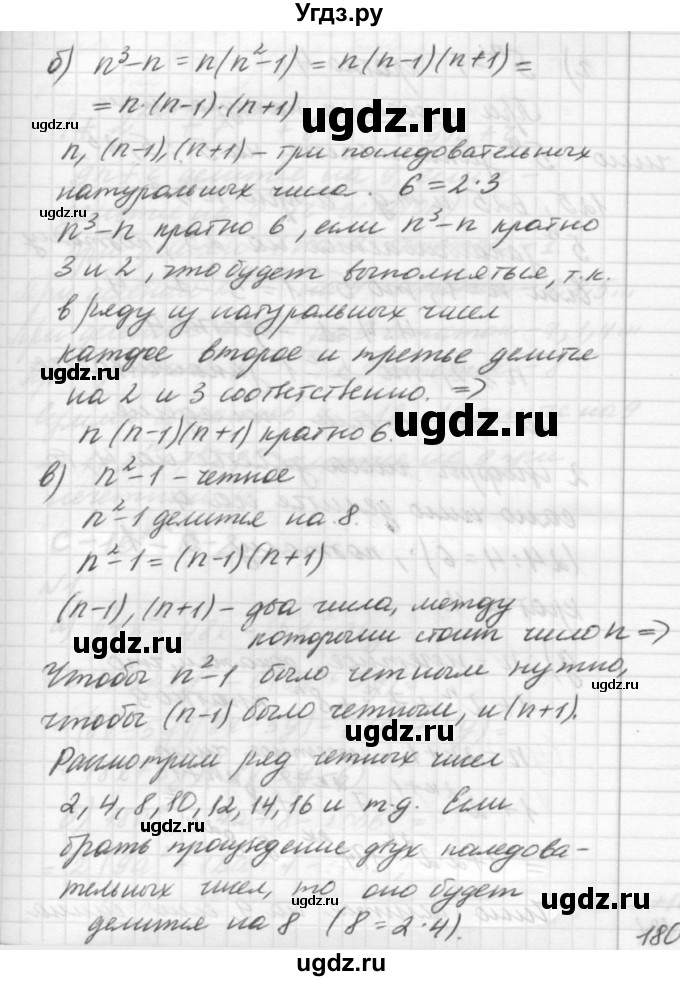 Угдз.ру
б) n³-n = n(n²-1) = n(n-1)(n+1) =
= n·(n-1)·(n+1)
ugdz.ru
ugdz.ru
n, (n-1), (n+1) - три последовательных
натуральных числа. 6=2·3
ugdz.ru
n³-n кратно 6, если n³-n кратно
3 и 2, это будет выполняться, т.к.
ugdz.ru
в ряду из натуральных чисел
каждое второе и третье делится
ugdz.ru
на 2 и 3 соответственно. =>
ugdz.ru
n(n-1)(n+1) кратно 6.
в) n²-1 - четное
n²-1 делится на 8.
ugdz.ru
ugdz.ru
n²-1 = (n-1)(n+1)
(n-1), (n+1) - два числа, между
ugdz.ru
которыми стоит число n =>
Чтобы n²-1 было четным нужно,
ugdz.ru
чтобы (n-1) было четным, и (n+1).
ugdz.ru
Рассмотрим ряд четных чисел
2, 4, 8, 10, 12, 14, 16 и т.д. Если
ugdz.ru
ugdz.ru
брать произведение двух последова-
тельных чисел, то оно будет
ugdz.ru
делится на 8 (8=2·4).
ugdz.ru
180
ugdz.ru